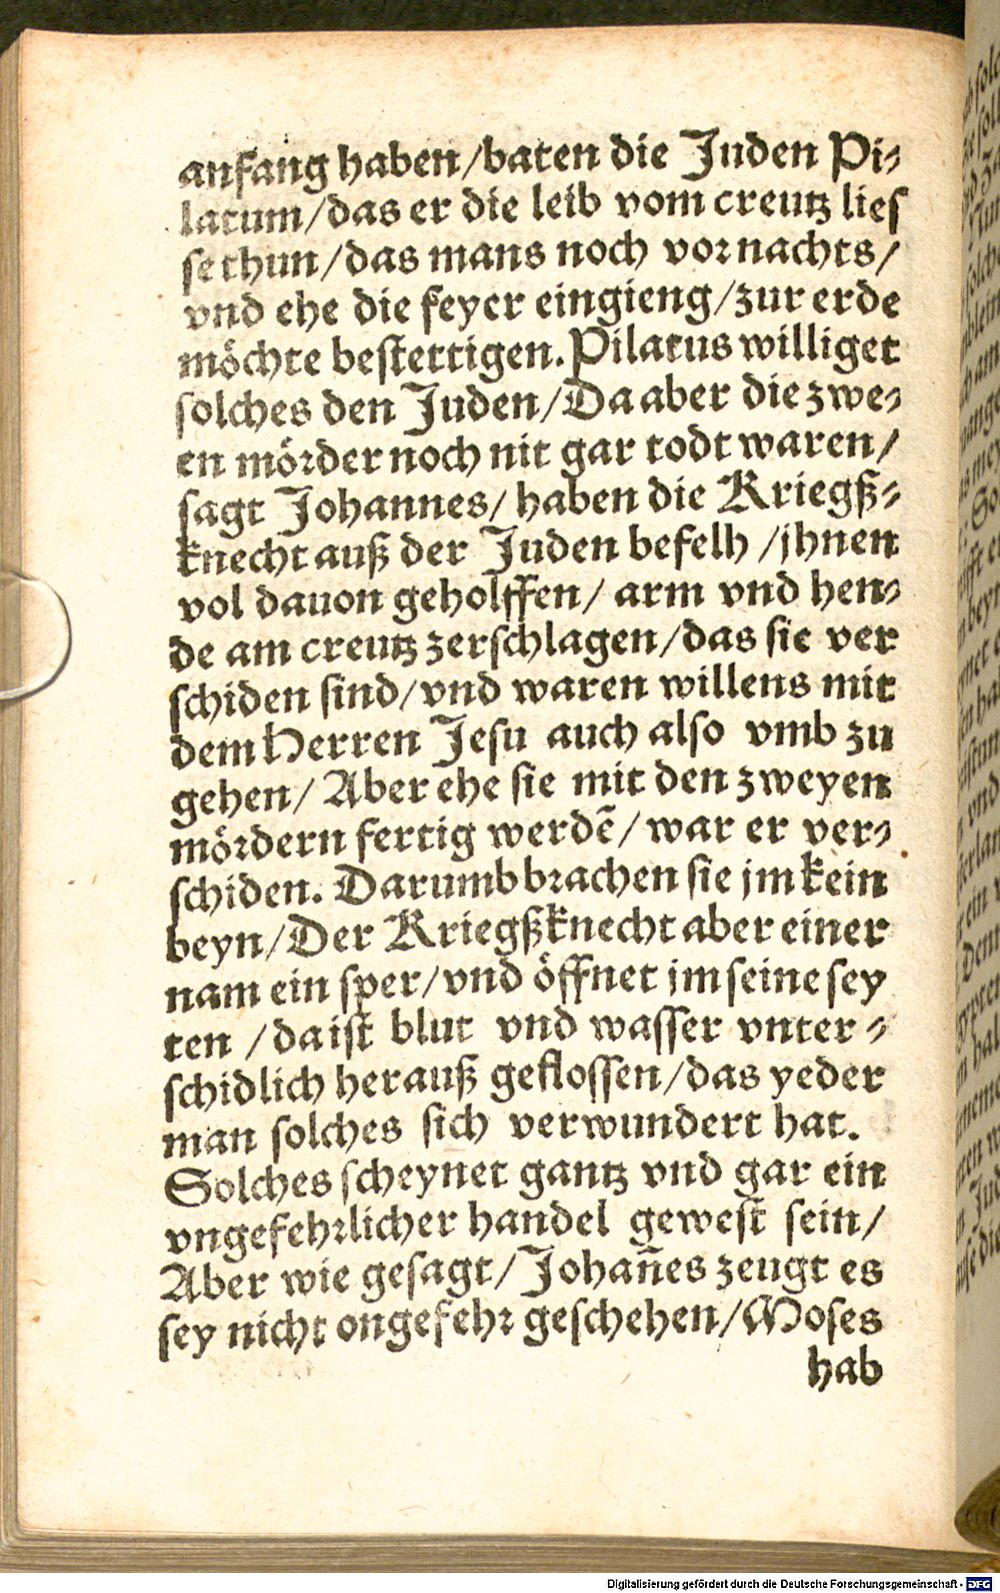 anfang haben/baten die Juden Pi⸗
latum/das er die leib vom creutz lies
se thun/das mans noch vor nachts/
vnd ehe die feyer eingieng/zur erde
möchte bestettigen. Pilatus williget
solches den Juden/Da aber die zwe⸗
en mörder noch nit gar todt waren/
sagt Johannes/ haben die Kriegß⸗
knecht auß der Juden befelh /jhnen
vol dauon geholffen/ arm vnd hen⸗
de am creutz zerschlagen/das sie ver
schiden sind/vnd waren willens mit
dem Herren Jesu auch also vmb zu
gehen/ Aber ehe sie mit den zweyen
mördern fertig werdē/ war er ver⸗
schiden. Darumb brachen sie jm kein
beyn/Der Kriegßknecht aber einer
nam ein sper/vnd öffnet jm seine sey
ten /da ist blut vnd wasser vnter⸗
schidlich herauß geflossen/das yeder
man solches sich verwundert hat.
Solches scheynet gantz vnd gar ein
vngefehrlicher handel gewest sein/
Aber wie gesagt/Johañes zeugt es
sey nicht ongefehr geschehen/Moses
hab
Digitalisierung gefördert durch die Deutsche Forschungsgemeinschaft - DFG